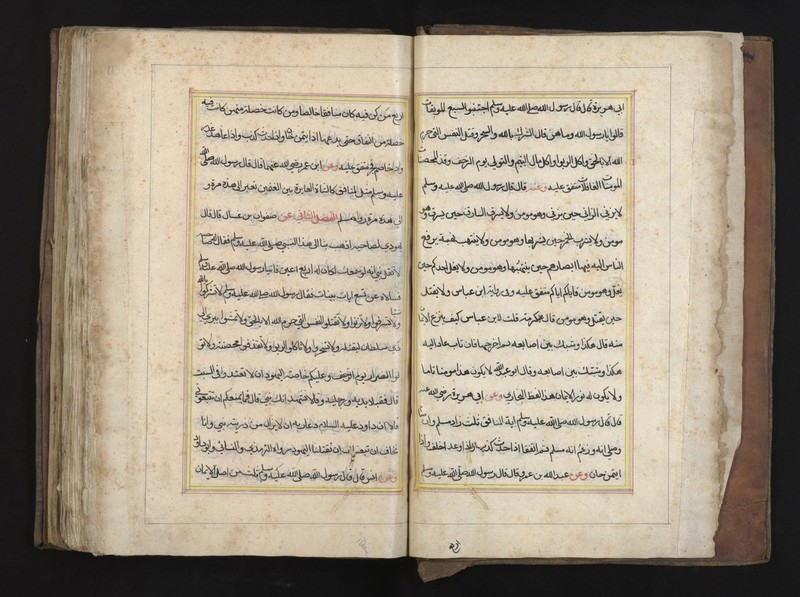 ابى هريرة قال قال رسول الله صلى الله عليه وسلم اجتنبوا السبع الموبقات
قالوا يا رسول الله وما هن قال الشرك بالله والسحر وقتل النفس التى حرم
الله الا بالحق واكل الربوا واكل مال اليتيم والتولى يوم الزحف وقذف المحصنات
المومنات الغافلات متفق عليه وعنه قال قال رسول الله صلى الله عليه وسلم
لا يزنى الزانى حين يزنى وهو مومن ولا يسرق السارق حين يسرق وهو
مومن ولا يشرب الخمر حين يشربها وهو مومن ولا ينتهب نهبة يرفع
الناس اليه فيها ابصارهم حين ينتهبها وهو مومن ولا يغل احدكم حين
يغل وهو مومن فاياكم اياكم متفق عليه وفى رواية ابن عباس ولا يقتل
حين يقتل وهو مومن قال عكرمة قلت لابن عباس كيف ينزع الايمان
منه قال هكذا وشبك بين اصابعه ثم اخرجها فان تاب عاد اليه
هكذا وشبك بين اصابعه وقال ابو عبد الله لا يكون هذا مومنا تاما
ولا يكون له نور الايمان هذا لفظ البخارى وعن ابى هريرة رضى الله عنه
قال قال رسول الله صلى الله عليه وسلم اية المنافق ثلث زاد مسلم وان صام
وصلى انه وزعم انه مسلم ثم اتفقا اذا حدث كذب واذا وعد اخلف واذا
ايتمن خان وعن عبد الله بن عمرو قال قال رسول الله صلى الله عليه وسلم
اربع من كن فيه كان منافقا خالصا ومن كانت خصلة منهن كانت فيه
خصلة من النفاق حتى يدعها اذا ايتمن خان واذا حدث كذب واذا عاهد غدر
واذا خاصم فجر متفق عليه وعن ابن عمر رضى الله عنهما قال قال رسول الله صلى الله
عليه وسلم مثل المنافق كالشاة العايرة بين الغنمين تعير الى هذه مرة و
الى هذه مرة رواه مسلم الفصل الثانى عن صفوان بن عسال قال قال
يهودى لصاحبه اذهب بنا الى هذا النبى صلى الله عليه وسلم فقال صاحبه
لا تقل نبى انه لو سمعك لكان له اربع اعين فاتيا رسول الله صلى الله عليه وسلم
فسالاه عن تسع ايات بينات فقال رسول الله صلى الله عليه وسلم لا تشركوا بالله
شيئا ولا تسرقوا ولا تزنوا ولا تقتلوا النفس التى حرم الله الا بالحق ولا تمشوا ببرى الى
ذى سلطان ليقتله ولا تسحروا ولا تاكلوا الربوا ولا تقذفوا محصنة ولا تو
لوا للفرار يوم الزحف وعليكم خاصة اليهود ان لا تعتدوا فى السبت
قال فقبلا يديه ورجليه وقالا نشهد انك نبى قال فما يمنعكم ان تتبعونى
قالا ان داود عليه السلام دعا ربه ان لا يزال من ذريته نبى وانا
نخاف ان تبعناك ان تقتلنا اليهود رواه الترمذى والنسائى وابو داود
وعن انس قال قال رسول الله صلى الله عليه وسلم ثلث من اصل الايمان